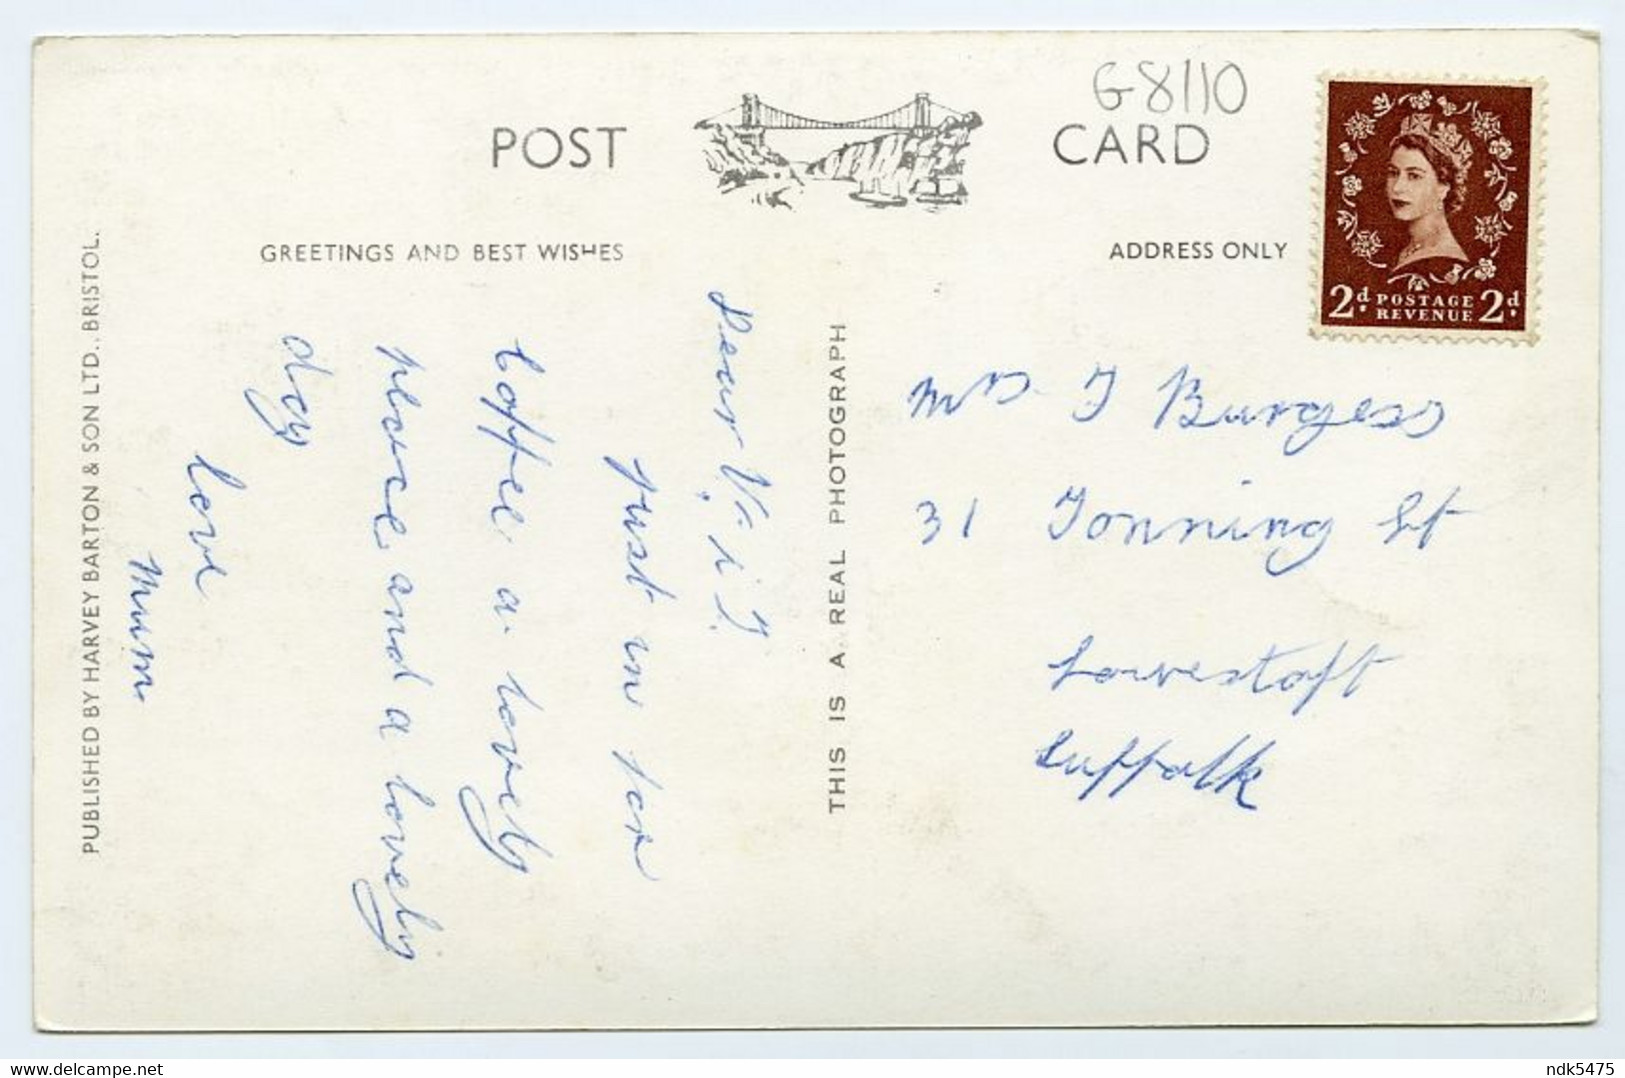 G8110
POST CARD
GREETINGS AND BEST WISHES
ADDRESS ONLY
2d. POSTAGE 2d.
REVENUE
PUBLISHED BY HARVEY BARTON & SON LTD., BRISTOL.
Dear V.i.T.
just in for
coffee a lovely
place and a lovely
day
love
mum
THIS IS A REAL PHOTOGRAPH
Mrs. T Burgess
31 Tonning St
Lowestoft
Suffolk
ndk5475